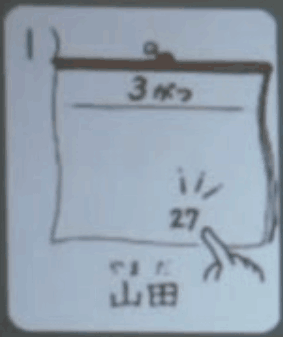 1
3がつ
27
やまだ
山田